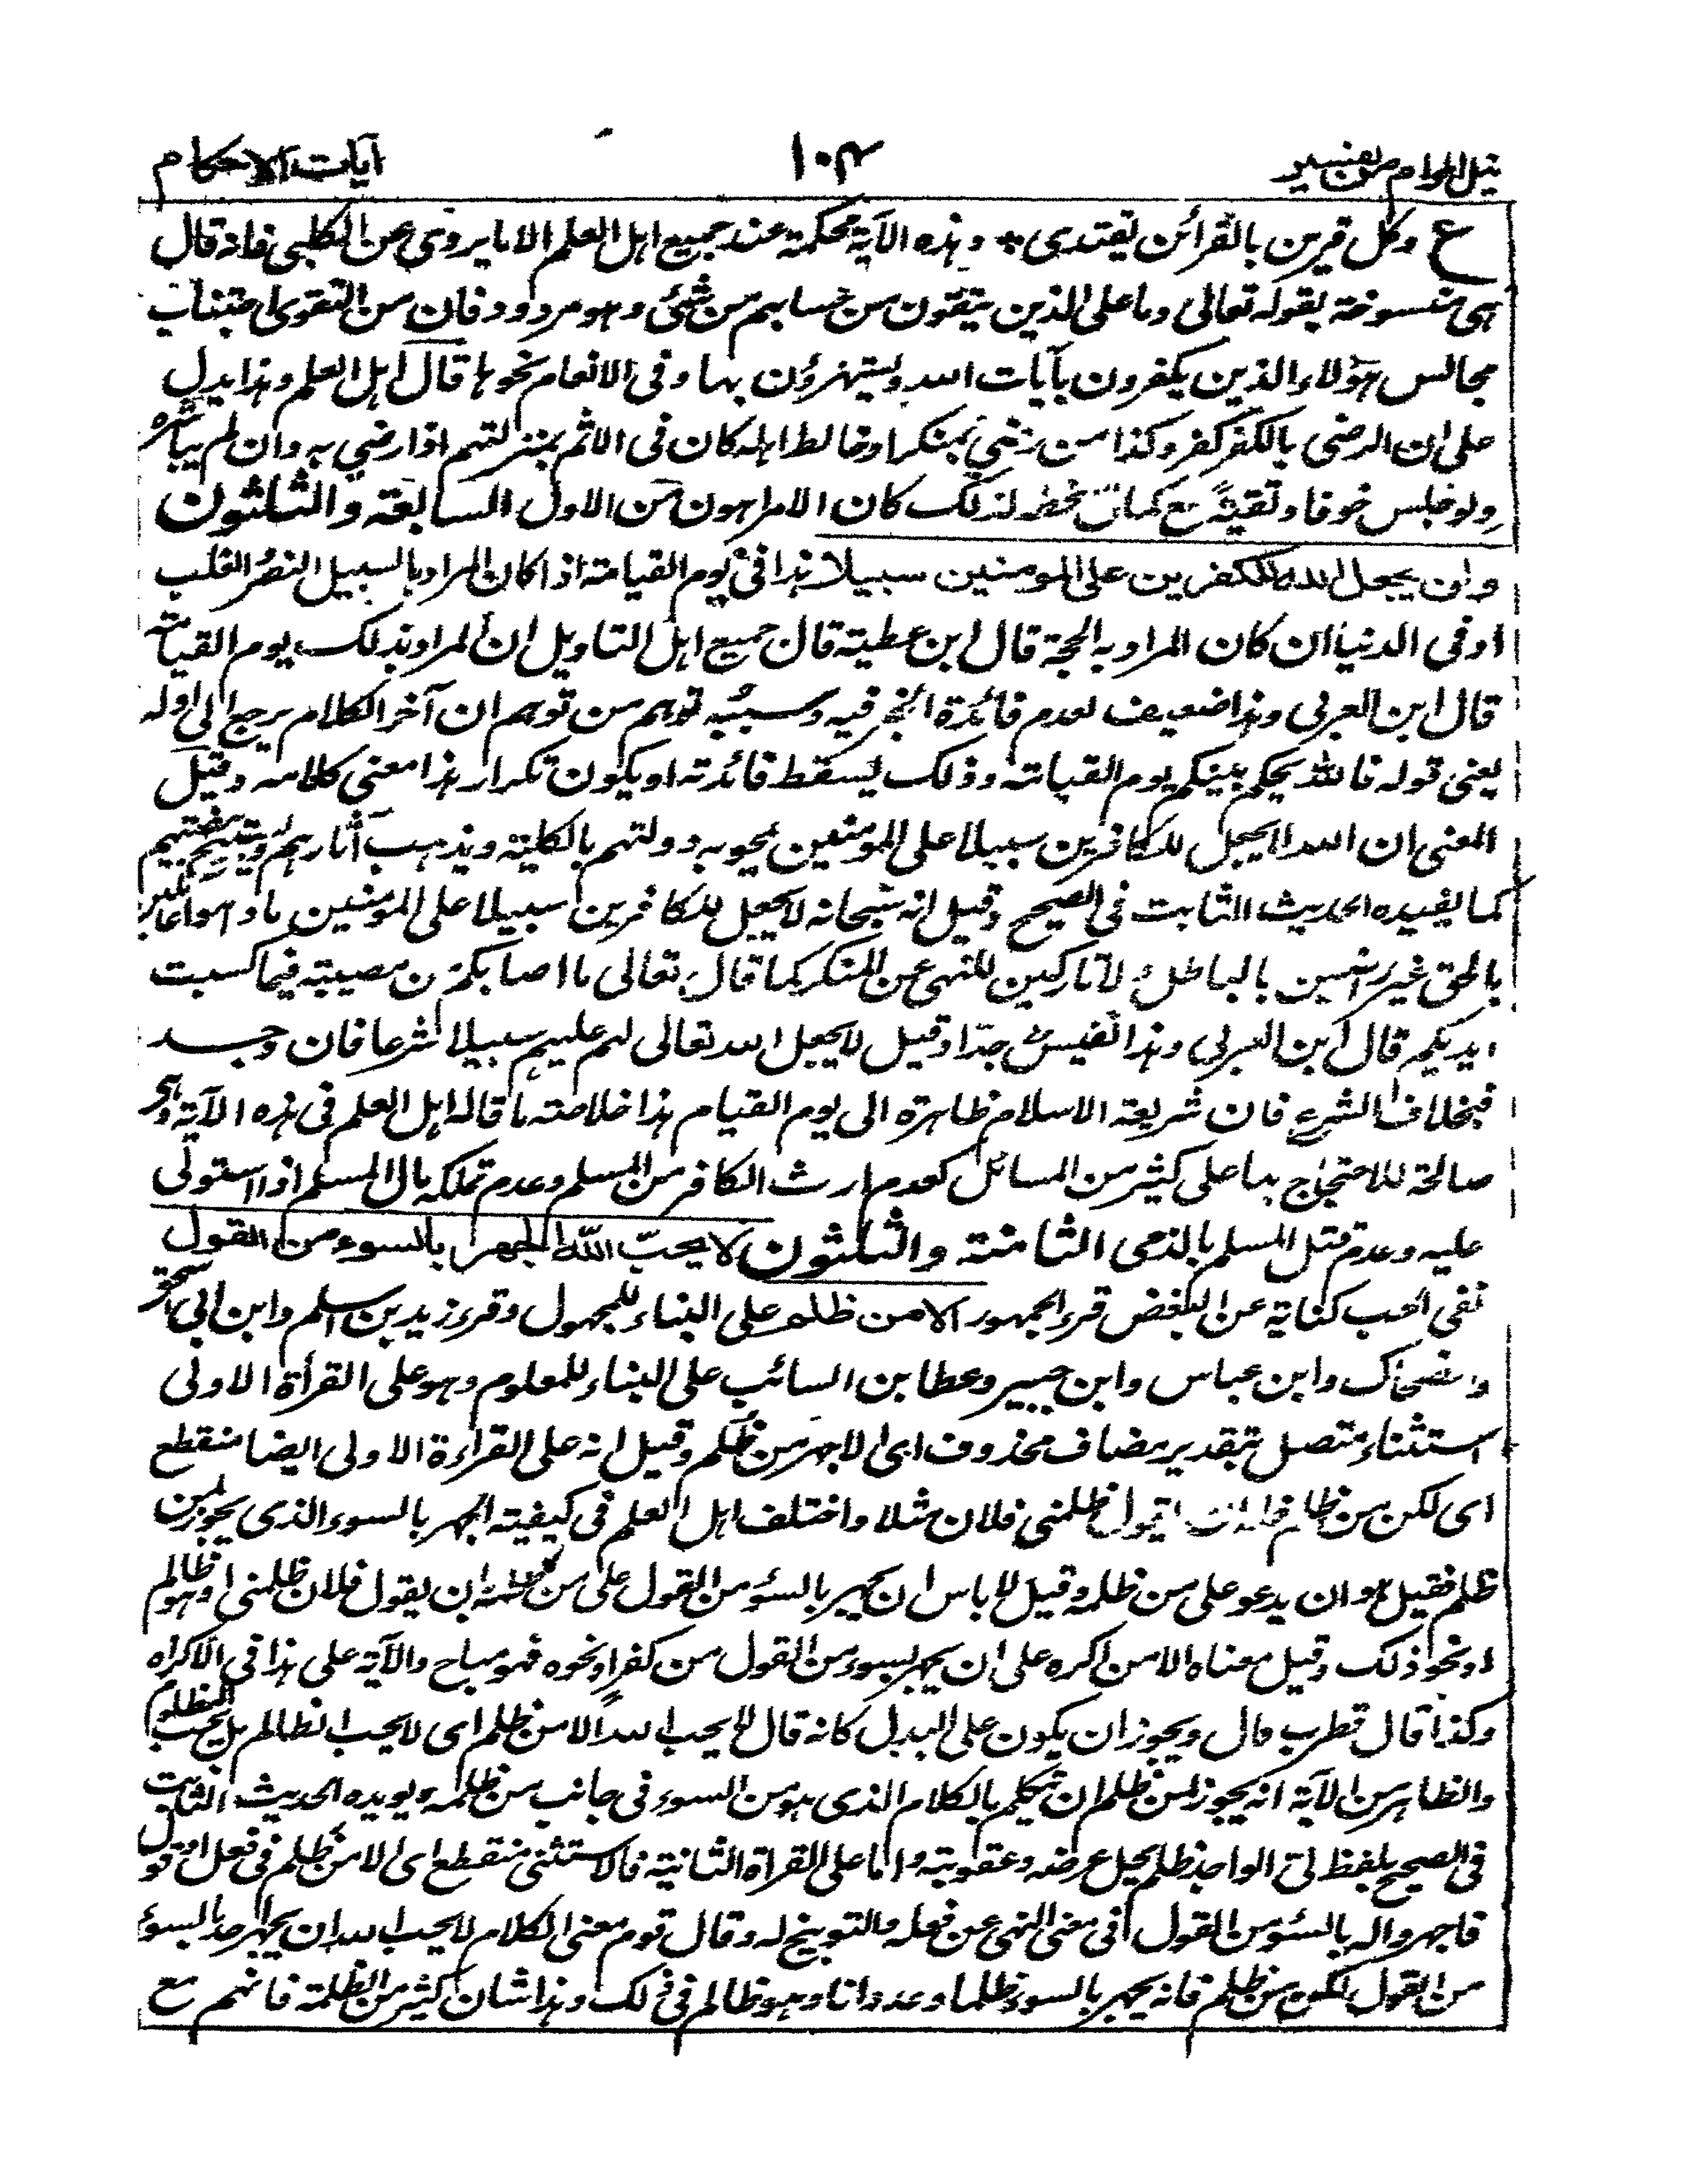 نيل المرام من تفسير ١٠٤ آيات الاحكام
ع وكل قرين بالقرائن يقتدى * وهذه الآية محكمة عند جميع اهل العلم الا ما يروى عن الكلبى فانه قال
هى منسوخة بقوله تعالى وما على الذين يتقون من حسابهم من شئ وهو مردود فان من التقوى اجتناب
مجالس هؤلاء الذين يكفرون بآيات الله ويستهزؤن بها وفى الانعام نحوها قال اهل العلم وهذا يدل
على ان الرضى بالكفر كفر وكذا من رضى بمنكر او خالط اهله كان فى الاثم بمنزلتهم اذا رضى به وان لم يباشره
ولو جلس خوفا وتقيةً مع كمال سخطه لذلك كان الامر اهون من الاول السابعة والثلثون
ولن يجعل الله للكفرين على المومنين سبيلا هذا فى يوم القيامة اذا كان المراد بالسبيل النصر والغلب
او فى الدنيا ان كان المراد به الحجة قال ابن عطية قال جميع اهل التاويل ان المراد بذلك يوم القيامة
قال ابن العربى وهذا ضعيف لعدم فائدة الخبر فيه وسببه توهم من توهم ان آخر الكلام يرجع الى اوله
يعنى قوله فالله يحكم بينكم يوم القيامة وذلك يسقط فائدته او يكون تكرار هذا معنى كلامه وقيل
المعنى ان الله لا يجعل للكافرين سبيلا على المومنين يمحو به دولتهم بالكلية ويذهب آثارهم ويستبيح بيضتهم
كما يفيده الحديث الثابت فى الصحيح وقيل انه سبحانه لا يجعل للكافرين سبيلا على المومنين ما داموا عاملين
بالحق غير راضين بالباطل ولا تاركين للنهى عن المنكر كما قال تعالى ما اصابكم من مصيبة فبما كسبت
ايديكم قال ابن العربى وهذا نفيس جدّا وقيل لا يجعل الله تعالى لهم عليهم سبيلا شرعا فان وجد
فبخلاف الشرع فان شريعة الاسلام ظاهرة الى يوم القيام هذا خلاصة ما قاله اهل العلم فى هذه الآية وهى
صالحة للاحتجاج بها على كثير من المسائل كعدم ارث الكافر من المسلم وعدم تملكه مال المسلم اذا استولى
عليه وعدم قتل المسلم بالذمى الثامنة والثلثون لا يحبّ الله الجهر بالسوء من القول
نفى الحب كناية عن البغض قرء الجمهور الا من ظلم على البناء للمجهول وقرء زيد بن اسلم وابن ابى اسحق
والضحاك وابن عباس وابن جبير وعطا بن السائب على البناء للمعلوم وهو على القرأة الاولى
استثناء متصل بتقدير مضاف محذوف اى الا جهر من ظلم وقيل انه على القراءة الاولى ايضا منقطع
اى لكن من ظلم فله ان يقول ظلمنى فلان مثلا واختلف اهل العلم فى كيفية الجهر بالسوء الذى يجوز لمن
ظلم فقيل هو ان يدعو على من ظلمه وقيل لا باس ان يجهر بالسؤ من القول على من ظلمه بان يقول فلان ظلمنى او هو ظالم
او نحو ذلك وقيل معناه الا من اكره على ان يجهر بسوء من القول من كفر او نحوه فهو مباح والآية على هذا فى الاكراه
وكذا قال قطرب قال ويجوز ان يكون على البدل كانه قال لا يحب الله الا من ظلم اى لا يحب الظالم بل يحب المظلوم
والظاهر من الآية انه يجوز لمن ظلم ان يتكلم بالكلام الذى هو من السوء فى جانب من ظلمه ويويده الحديث الثابت
فى الصحيح بلفظ لىّ الواجد ظلم يحل عرضه وعقوبته واما على القراة الثانية فالاستثنى منقطع اى الا من ظلم فى فعل او قول
فاجهروا له بالسؤ من القول فى معنى النهى عن فعله والتوبيخ له وقال قوم معنى الكلام لا يحب الله ان يجهر احد بالسوء
من القول لكن من ظلم فانه يجهر بالسوء ظلما وعدوانا وهو ظالم فى ذلك وهذا شان كثير من الظلمة فانهم مع